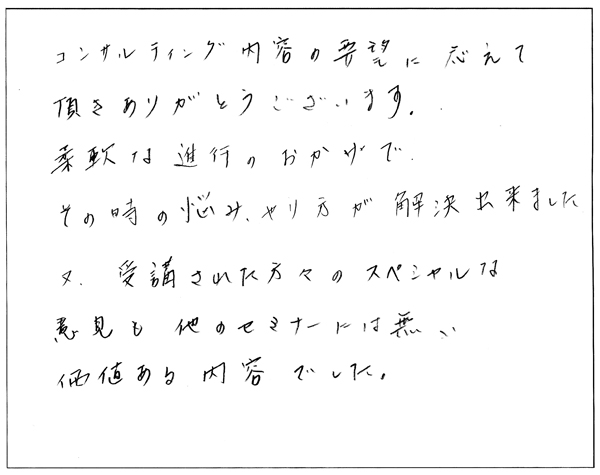 コンサルティング内容の要望に応えて
頂きありがとうございます。
柔軟な進行のおかげで
その時の悩み、やり方が解決出来ました
又、受講された方々のスペシャルな
意見も他のセミナーには無い
価値ある内容でした。